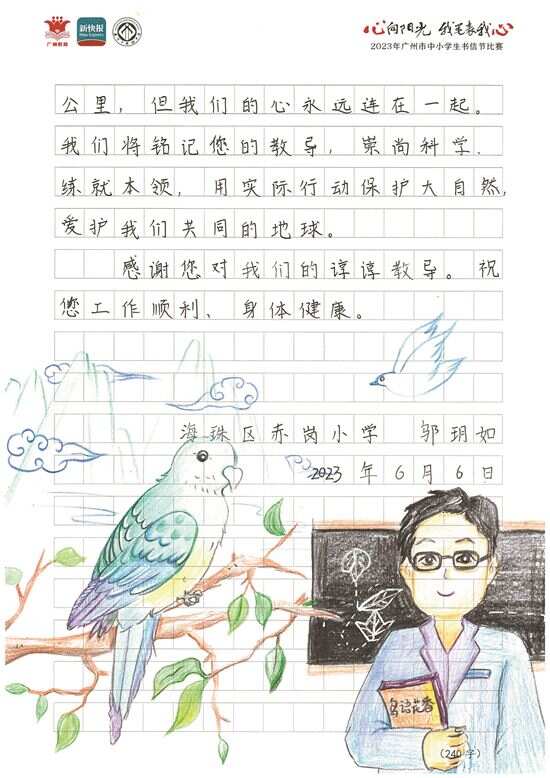 广州教育
新快报
心向阳光 我笔表我心
2023年广州市中小学生书信节比赛
公里，但我们的心永远连在一起。
我们将铭记您的教导，崇尚科学．
练就本领，用实际行动保护大自然，
爱护我们共同的地球。
感谢您对我们的谆谆教导。祝
您工作顺利、身体健康。
海珠区赤岗小学 邹玥如
2023年6月6日
鸟语花香
(240字)